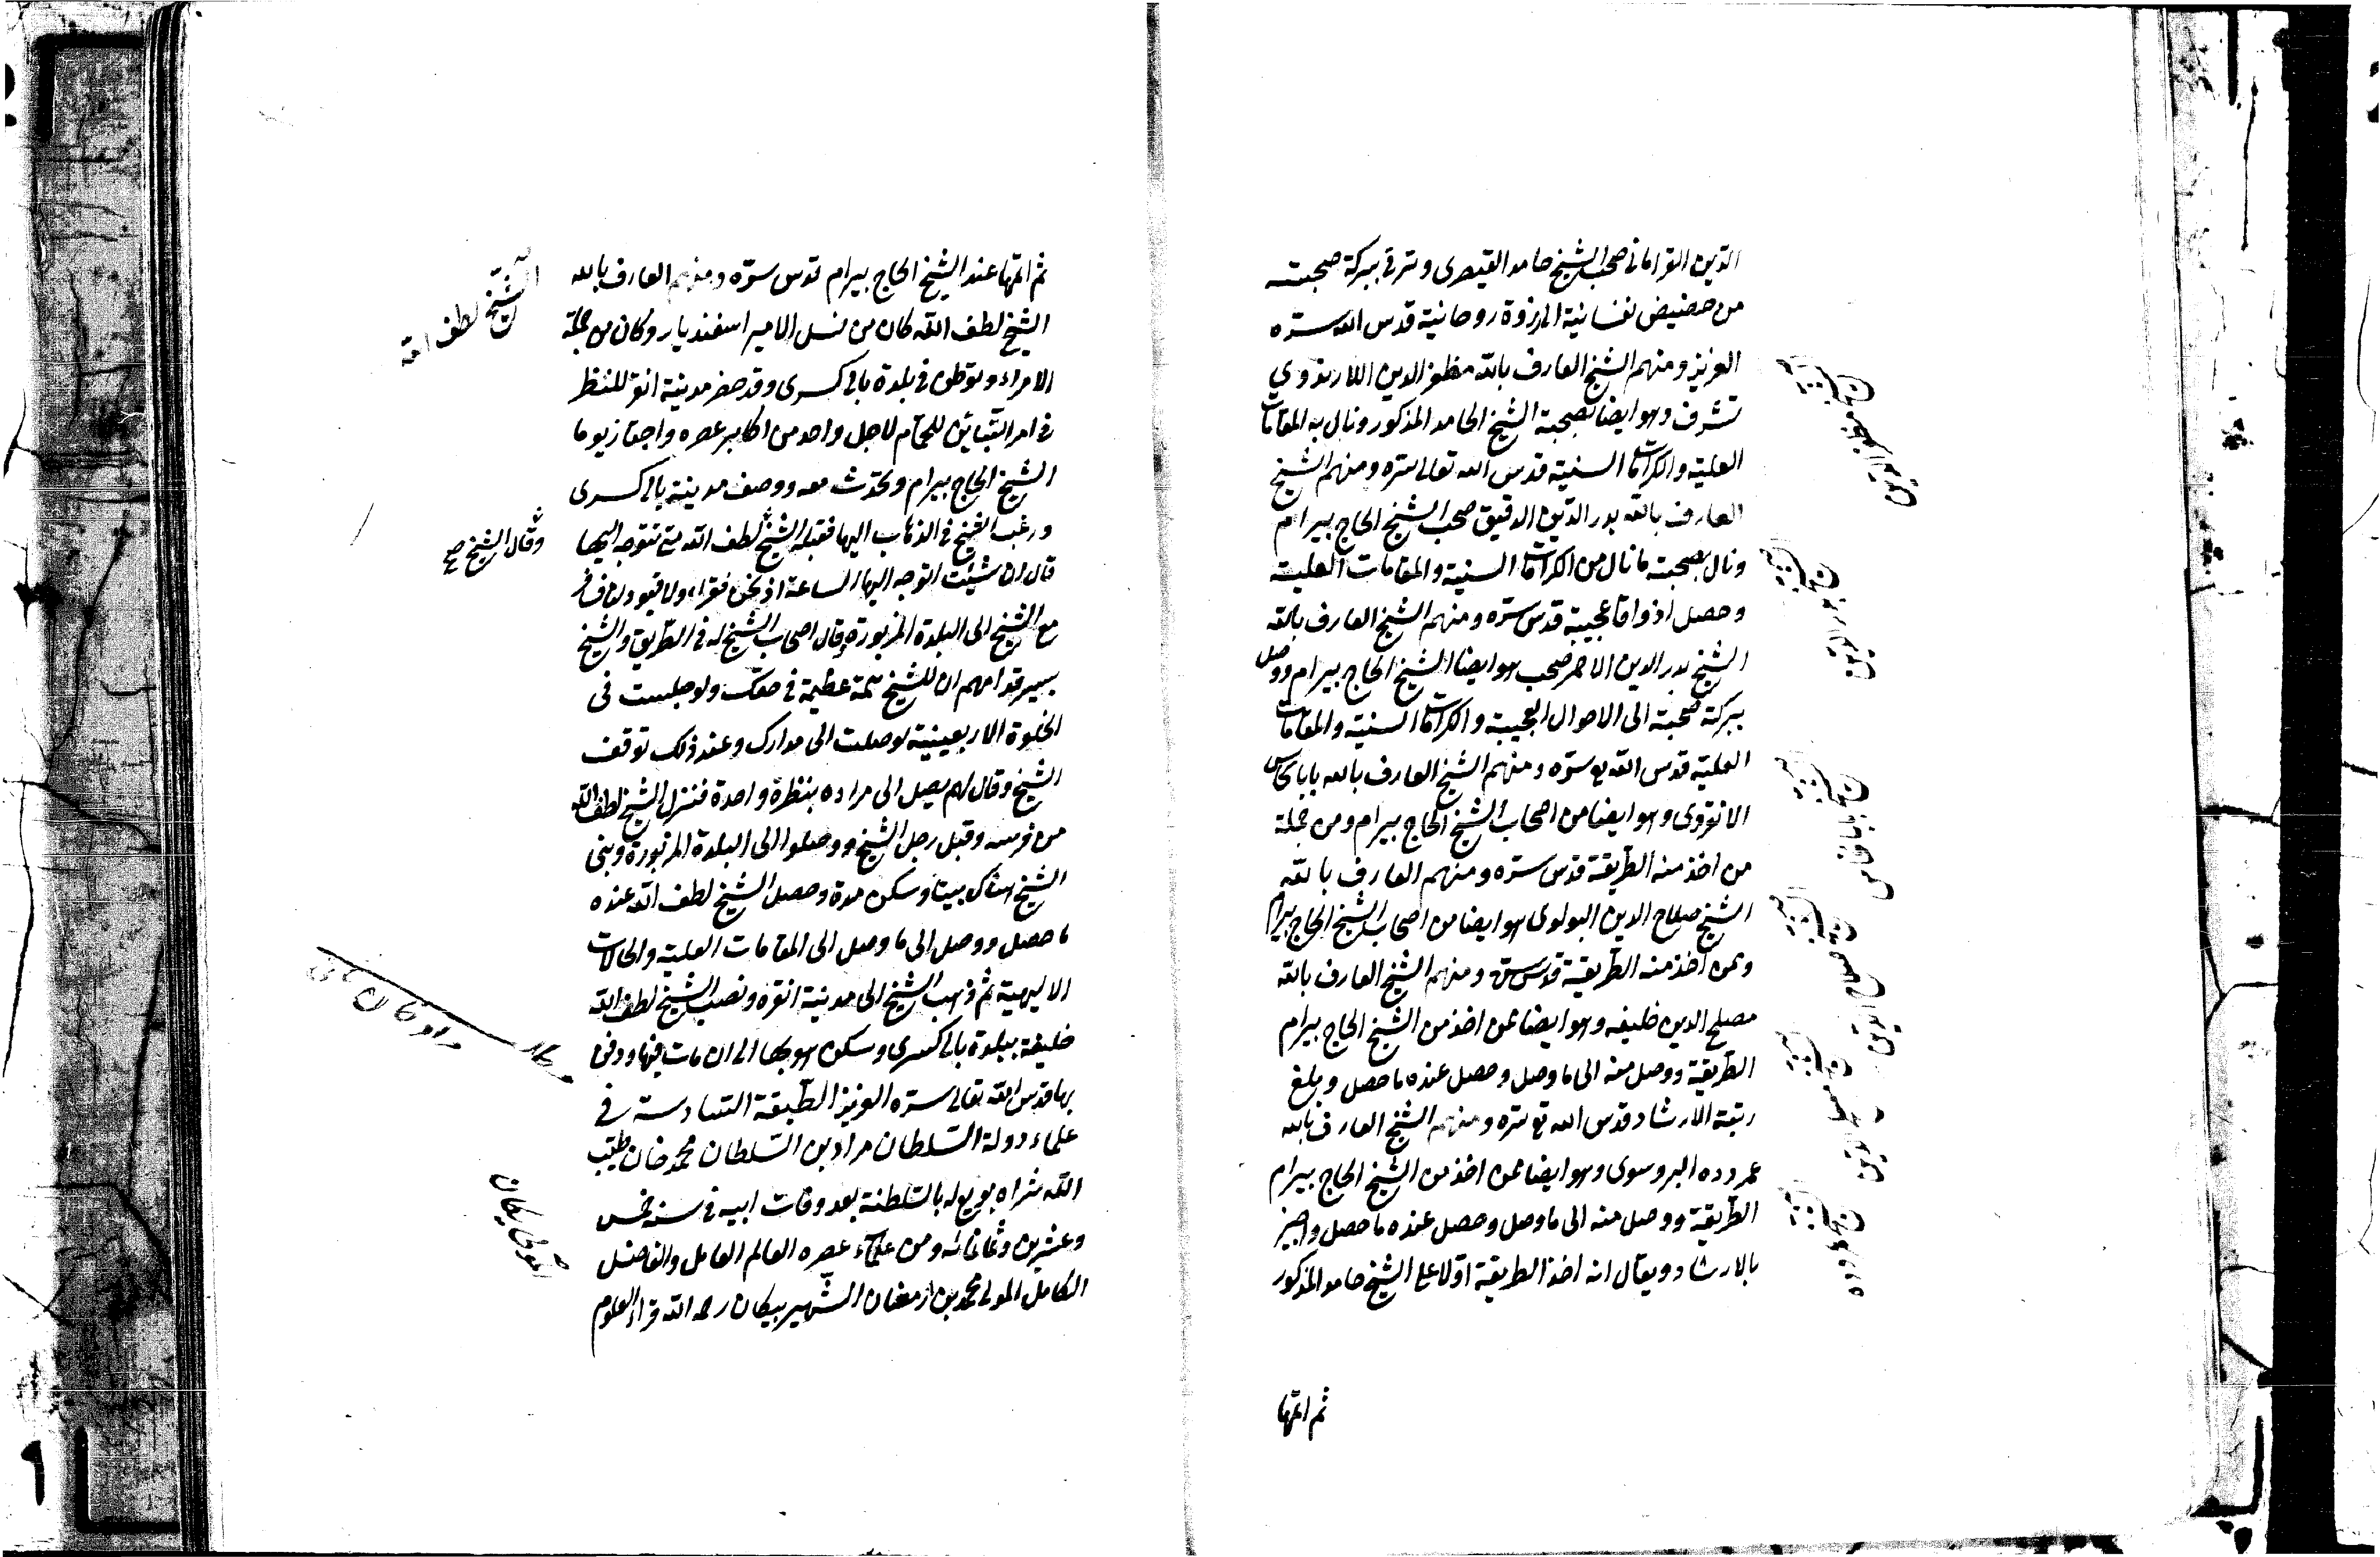 الدين القراماني صحب الشيخ حامد القيصرى وترقى ببركة صحبته
من حضيض نفسانية الى ذروة روحانية قدس الله سره
العزيز ومنهم الشيخ العارف بالله مظفر الدين اللارندوي
تشرف وهو ايضا بصحبة الشيخ الحامد المذكور ونال به المقامات
العلية والكرامات السنية قدس الله تعالى سره ومنهم الشيخ
العارف بالله بدر الدين الدقيق صحب الشيخ الحاج بيرام
ونال بصحبته ما نال من الكرامات السنية والمقامات العلية
وحصل اذواقا عجيبة قدس سره ومنهم الشيخ العارف بالله
الشيخ بدر الدين الاحمر صحب هو ايضا الشيخ الحاج بيرام ووصل
ببركة صحبته الى الاحوال العجيبة والكرامات السنية والمقامات
العلية قدس الله تع سره ومنهم الشيخ العارف بالله بابا نحاس
الانقروى وهو ايضا من اصحاب الشيخ الحاج بيرام ومن جملة
من اخذ منه الطريقة قدس سره ومنهم العارف بالله
الشيخ صلاح الدين البولوى هو ايضا من اصحاب الشيخ الحاج بيرام
وممن اخذ منه الطريقة قدس سره ومنهم الشيخ العارف بالله
مصلح الدين خليفه وهو ايضا ممن اخذ من الشيخ الحاج بيرام
الطريقة ووصل منه الى ما وصل وحصل عنده ما حصل وبلغ
رتبة الارشاد قدس الله تع سره ومنهم الشيخ العارف بالله
عمر دده البروسوى وهو ايضا ممن اخذ من الشيخ الحاج بيرام
الطريقة ووصل منه الى ما وصل وحصل عنده ما حصل واجيز
بالارشاد ويقال انه اخذ الطريقة اولا على الشيخ حامد المذكور
ثم اتمها
ثم اتمها عند الشيخ الحاج بيرام قدس سره ومنهم العارف بالله
الشيخ لطف الله كان من نسل الامير اسفنديار وكان من جملة
الامراء وتوطن في بلدة بالى كسرى وقد حضر مدينة انقره للنظر
في امر القباين للحمام لاجل واحد من اكابر عصره واجتاز يوما
الشيخ الحاج بيرام وتحدث معه ووصف مدينة بالى كسرى
ورغب الشيخ في الذهاب اليها فقبله الشيخ لطف الله متى تتوجه اليها
وقال الشيخ صح
قال ان شئت اتوجه اليها الساعة اذ نحن فقراء ولا قيود لنا فسافر
مع الشيخ الى البلدة المزبورة وقال اصحاب الشيخ له في الطريق والشيخ
يسير قدامهم ان للشيخ همة عظيمة في حقك ولو جلست في
الخلوة الاربعينية لوصلت الى مدارك وعند ذلك توقف
الشيخ وقال لهم يصل الى مراده بنظرة واحدة فنزل الشيخ لطف الله
من فرسه وقبل رجل الشيخ ووصلوا الى البلدة المزبورة وبنى
الشيخ هناك بيتا وسكن مدة وحصل الشيخ لطف الله عنده
ما حصل ووصل الى ما وصل الى المقامات العلية والحالات
الالهية ثم ذهب الشيخ الى مدينة انقره ونصب الشيخ لطف الله
خليفة ببلدة بالى كسرى وسكن هو بها الى ان مات فيها ودفن
بها قدس الله تعالى سره العزيز الطبقة السادسة في
علماء دولة السلطان مراد بن السلطان محمد خان طيب
الله ثراه بويع له بالسلطنة بعد وفات ابيه في سنة خمس
وعشرين وثمانمائه ومن علماء عصره العالم العامل والفاضل
الكامل المولى محمد بن ارمغان الشهير بيكان رحمه الله قرأ العلوم
الشيخ لطف الله
المولى يكان